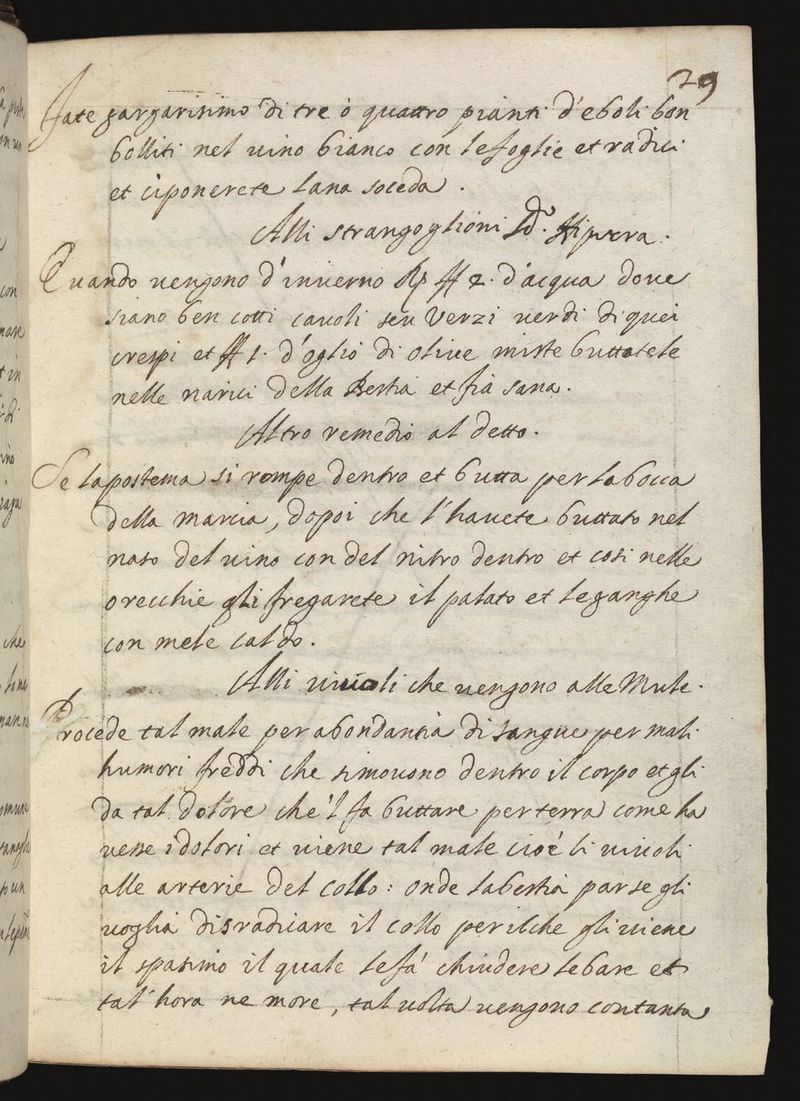 29
Fate gargarismo di tre ò quattro pianti d'eboli ben
bolliti nel vino bianco con le foglie et radici
et ci ponerete lana soceda.
Alli strangoglioni Id.
Quando vengono d'inverno ℞ ℔ 2. d'acqua dove
siano ben cotti cavoli seu Verzi verdi di quei
crespi et ℔ 1. d'oglio di olive miste buttatele
nelle narici della Bestia et fia sana.
Altro remedio al detto.
Se la postema si rompe dentro et butta per la bocca
della marcia, dopoi che l'havete buttato nel
naso del vino con del nitro dentro et cosi nelle
orecchie gli fregarete il palato et le ganghe
con mele caldo.
Alli vivoli che vengono alle Mule.
Procede tal male per abondantia di sangue per mali
humori freddi che si movono dentro il corpo et gli
da tal dolore che'l fa buttare per terra come ha
vesse i dolori et viene tal male cioè li vivoli
alle arterie del collo: onde la bestia par se gli
voglia disradicare il collo per il che gli viene
il spasimo il quale le fà chiudere le bare et
tal'hora ne more, tal volta vengono con tanta